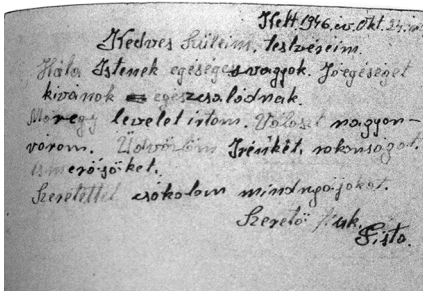 Kelt. 1946. év. Okt. 24.
Kedves Szüleim, testvéreim.
Hála Istenek egéséges vagyok. Jóegéséget
kivánok egészcsaládnak.
Máregy levelet irtom. Választ nagyon-
várom. Üdvözlöm Irénkét, rokonságot,
ismerősöket.
Szeretettel csókolom mindnyájokat.
Szerető fiuk.
Pista.